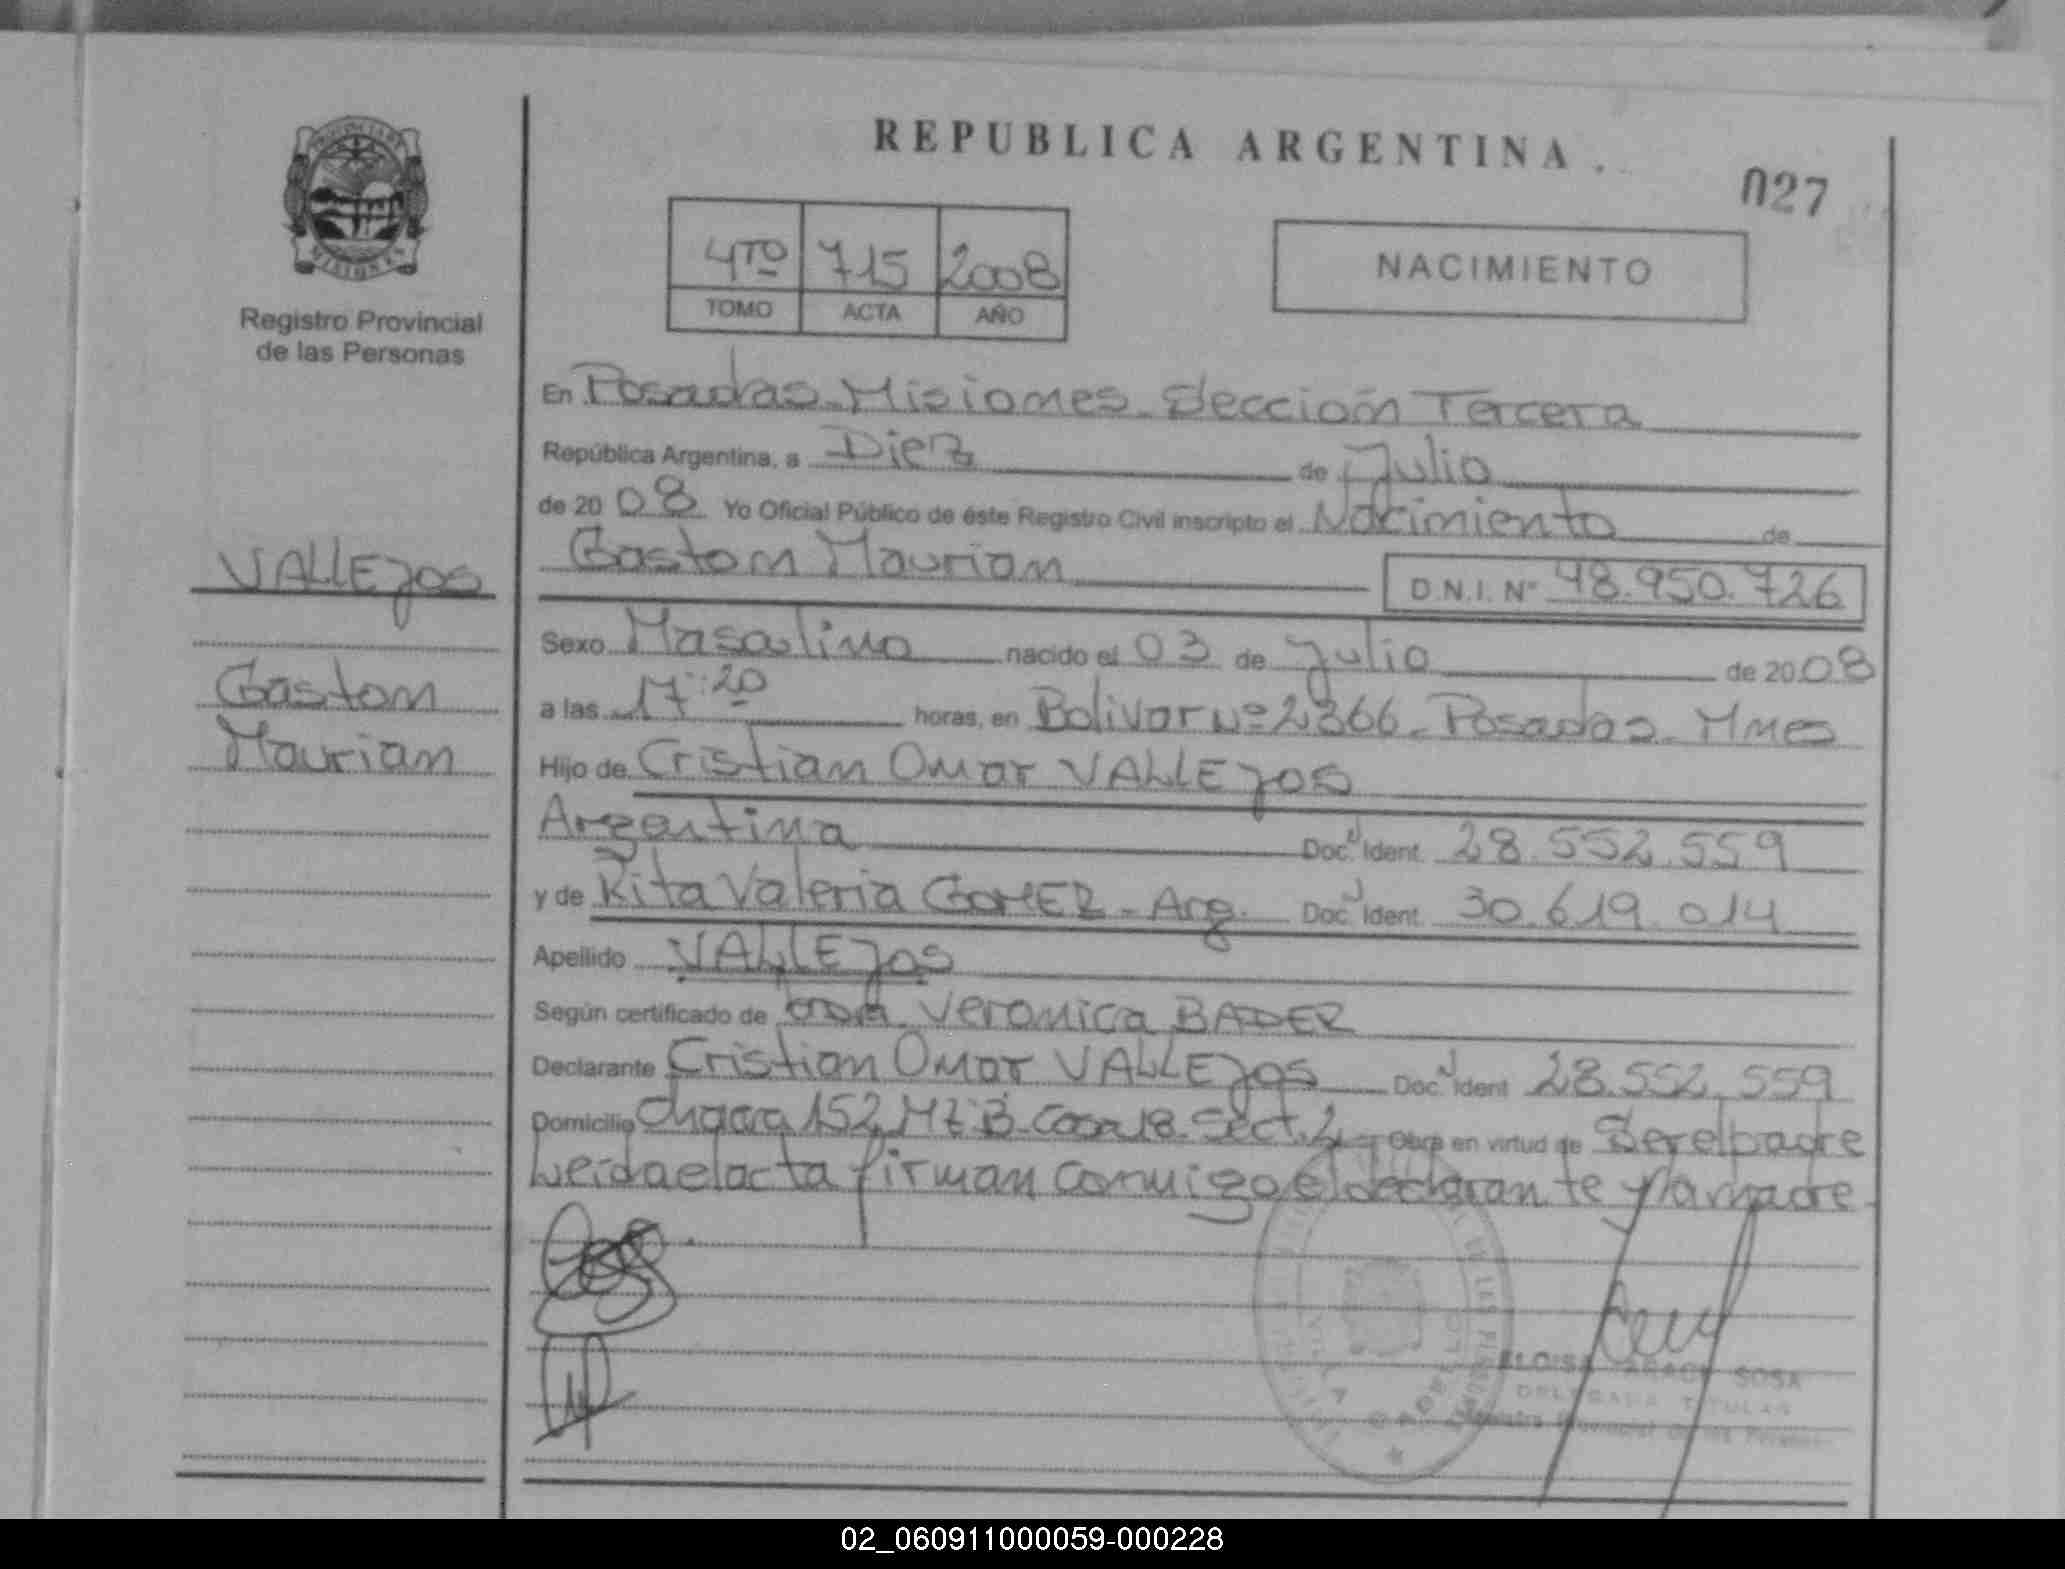 REPUBLICA ARGENTINA
027
PROVINCIA DE
MISIONES
Registro Provincial
de las Personas
4TO 715 2008
TOMO ACTA AÑO
NACIMIENTO
En Posadas-Misiones-Sección Tercera
República Argentina, a Diez de Julio
de 2008 Yo Oficial Público de éste Registro Civil inscripto el Nacimiento de
Gaston Maurian D.N.I. Nº 48.950.726
VALLEJOS
Gaston
Maurian
Sexo Masculino nacido el 03 de Julio de 2008
a las 17:20 horas, en Bolivar Nº 2366-Posadas-Mnes
Hijo de Cristian Omar VALLEJOS
Argentina Doc. Ident. 28.552.559
y de Rita Valeria GOMEZ-Arg. Doc. Ident. 30.619.014
Apellido VALLEJOS
Según certificado de Veronica BADER
Declarante Cristian Omar VALLEJOS Doc. Ident 28.552.559
Domicilio Chacra 152 Mz B-Casa 18-Sect. 2 Obra en virtud de Ser el padre
Leída el acta firman conmigo el declarante y la madre
ELOISA ARACI SOSA
DELEGADA TITULAR
Registro Provincial de las Personas
02_060911000059-000228